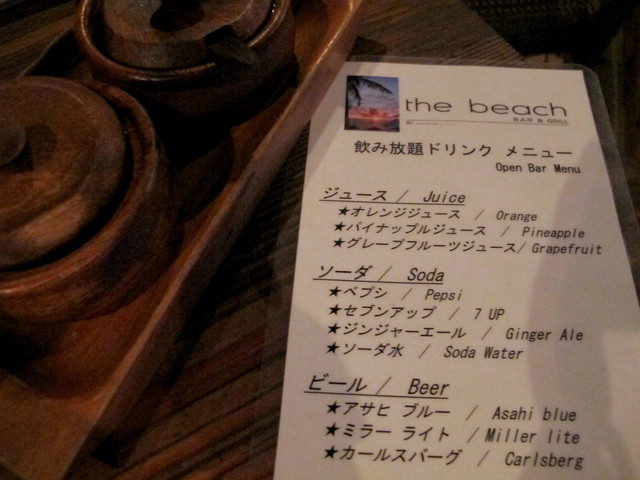 the beach
BAR & GRILL
飲み放題ドリンク メニュー
Open Bar Menu
ジュース / Juice
★オレンジジュース / Orange
★パイナップルジュース / Pineapple
★グレープフルーツジュース/ Grapefruit
ソーダ/ Soda
★ペプシ / Pepsi
★セブンアップ / 7 UP
★ジンジャーエール / Ginger Ale
★ソーダ水 / Soda Water
ビール / Beer
★アサヒ ブルー / Asahi blue
★ミラー ライト /Miller lite
★カールスバーグ / Carlsberg